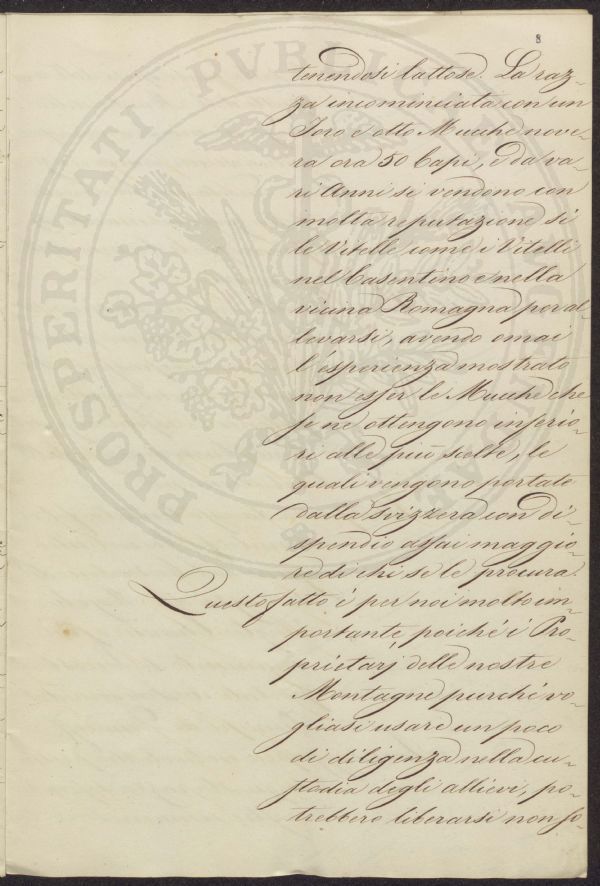 8
tenendosi lattose. La raz-
za incominciata con un
Toro e otto Mucche nove-
ra ora 50 Capi, e da va-
rj Anni si vendono con
molta reputazione sì
le Vitelle come i Vitelli
nel Casentino e nella
vicina Romagna per al-
levarsi, avendo omai
l'esperienza mostrato
non esser le Mucche che
se ne ottengono inferio-
ri alle più scelte, le
quali vengono portate
dalla Svizzera con di-
spendio assai maggio-
re di chi se le procura.
Questo fatto è per noi molto im-
portante, poiché i Pro-
prietarj delle nostre
Montagne purché vo-
gliasi usare un poco
di diligenza nella cu-
stodia degli allievi, po-
trebbero liberarsi non so-
PROSPERITATI PVBLIC